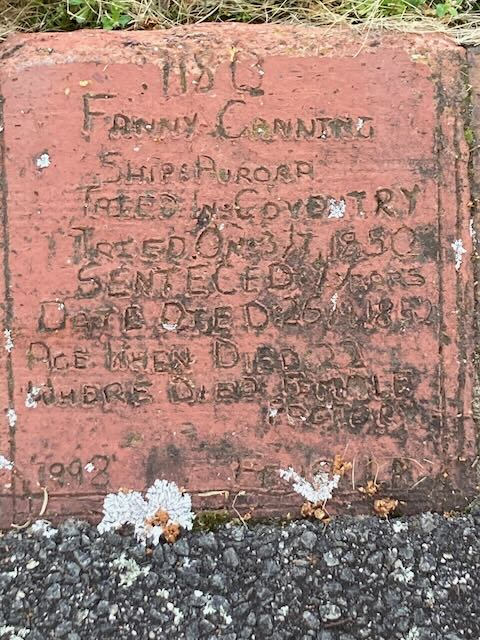 118
FANNY CANNING
SHIP: AURORA
TRIED IN: COVENTRY
TRIED ON: 1850
SENTECED: 7 YEARS
DATE DIED: 26
AGE WHEN DIED: 22
WHERE DIED: FEMALE
FACTORY
1992